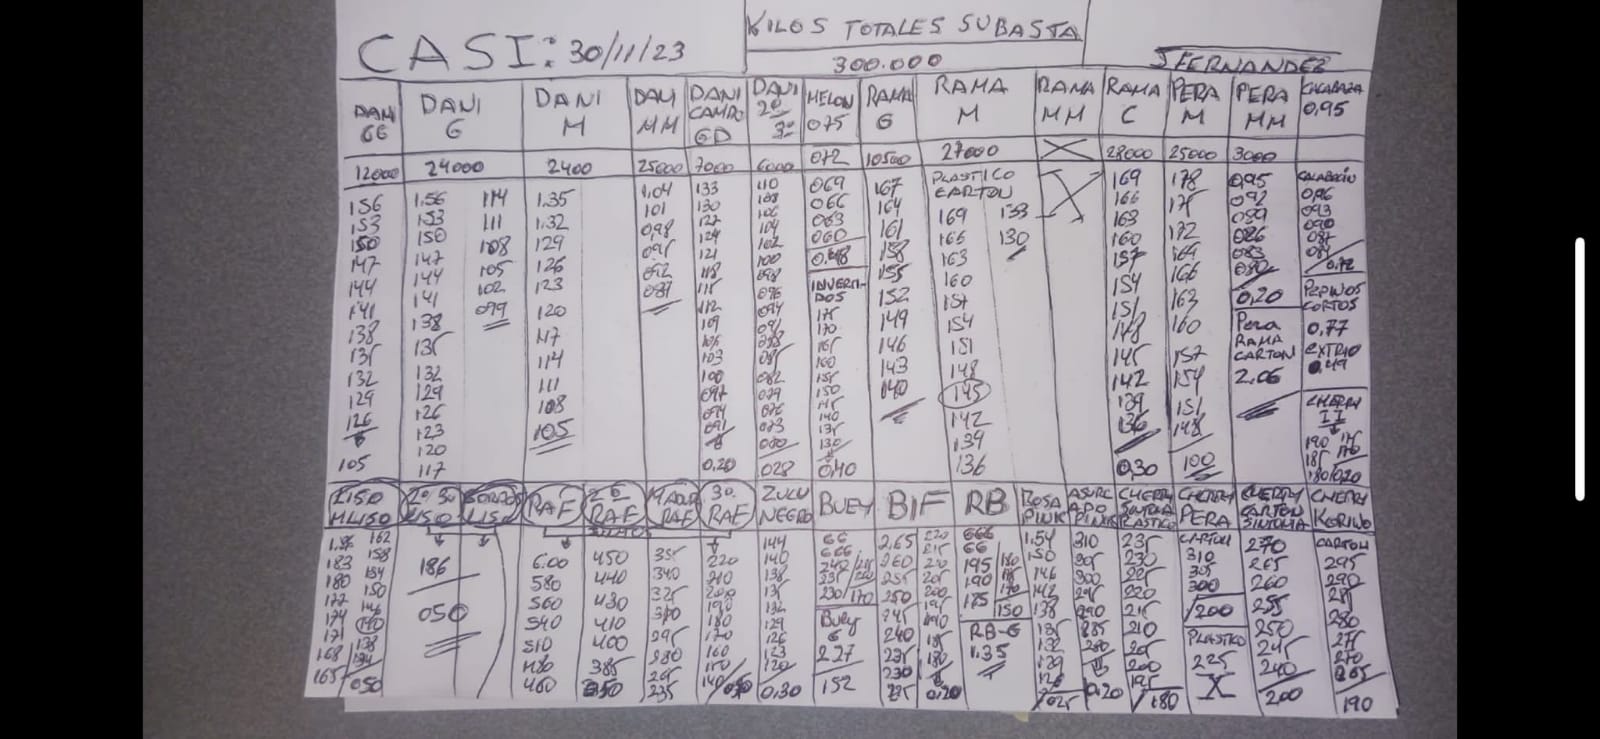 KILOS TOTALES SUBASTA
CASI: 30/11/23
300.000
J FERNANDEZ
DANI GG
DANI G
DANI M
DANI MM
DANI CAMPO GD
DANI 2º 3º
MELON 075
RAMA G
RAMA M
RAMA MM
RAMA C
PERA M
PERA MM
CALABAZA 0,95
12000 24000 2400 25000 7000 6000 072 10500 27000 X 28000 25000 3000
156 153 150 147 144 141 138 135 132 129 126 105
1.56 153 150 147 144 141 138 135 132 129 126 123 120 117
114 111 108 105 102 099
1.35 1.32 129 126 123 120 117 114 111 108 105
1.04 101 098 095 092 089
133 130 127 124 121 118 115 112 109 106 103 100 097 094 091 0,20
110 108 106 104 102 100 098 096 094 091 088 085 082 079 076 073 028
069 066 063 060 0,48
INVERTIDOS
175 170 165 160 155 150 145 140 135 130 0,40
167 164 161 158 155 152 149 146 143 140
PLASTICO
CARTON
169 166 163 160 157 154 151 148 145 142 139 136
133 130
169 166 163 160 157 154 151 148 145 142 139 136 0,30
178 175 172 169 166 163 160 157 154 151 148 100
0,95 092 089 086 083 080
0,20
PERA
RAMA
CARTON
2.06
CALABACIN
0,96 093 090 087 084 0,72
PEPINOS
CORTOS
0,77
EXTRIO
0,49
CHERRY
II
190 185 180 175 170 0,20
LISO MLISO
2º 3º LISO
BORDOS LISO
RAF
2º RAF
MADUR RAF
3º RAF
ZULU NEGRO
BUEY
BIF
RB
ROSA PINK
ASURCADO PINK
CHERRY SINTOMA PLASTICO
CHERRY PERA
CHERRY CARTON SINTOMA
CHERRY KORINO
183 180 177 174 171 168 165
162 158 154 150 146 140 138 134 050
186
050
6.00 580 560 540 510 480 460
450 440 430 410 400 385 350
355 340 325 310 295 280 265 235
220 210 200 190 180 170 160 150 140
144 140 138 135 132 129 126 123 120 0,30
66 666 240 235 230 170
BUEY
G
2.27
152
2.65 260 255 250 245 240 235 230 225
220 215 210 205 200 195 190 185 180 0,20
666 66 195 190 175
180 175 170 150
RB-G
1.35
1.54 150 146 142 138 135 132 129 126 025
310 305 300 295 290 285 280 0,20
235 230 225 220 215 210 205 200 195 180
CARTON
310 305 300 200
PLASTICO
225
X
270 265 260 255 250 245 240 200
CARTON
295 290 285 280 275 270 265 190